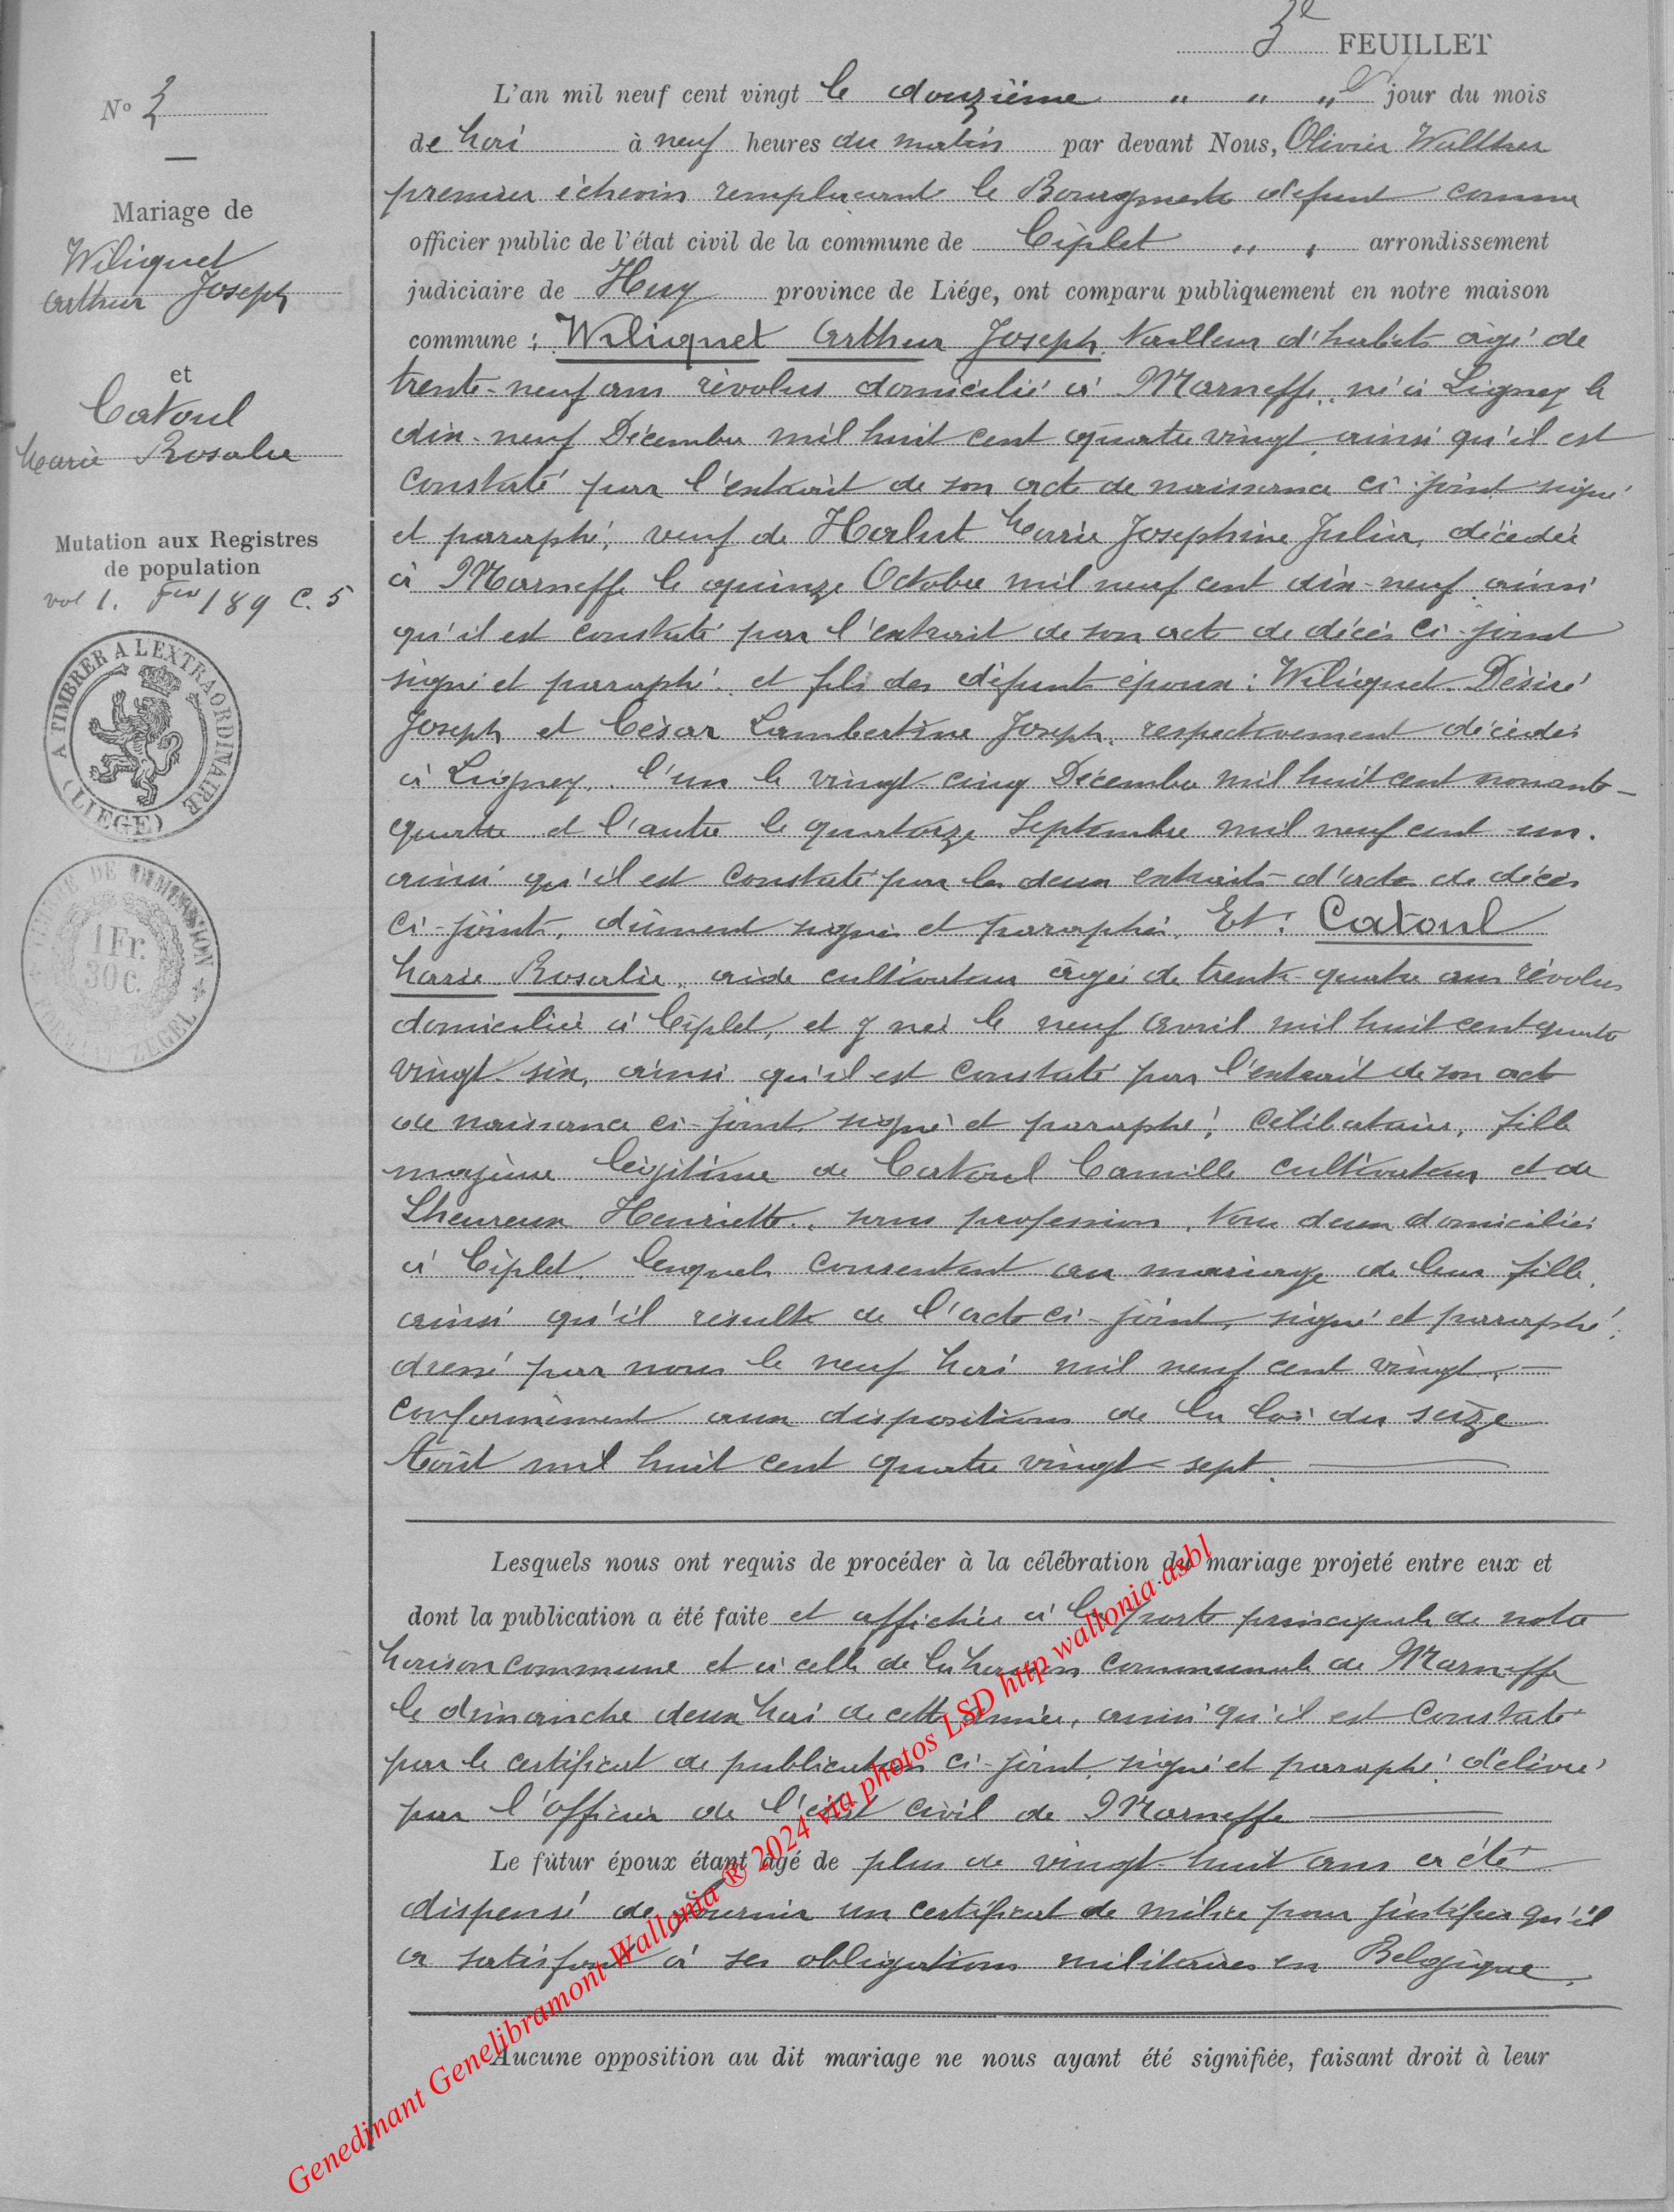 3e FEUILLET
L'an mil neuf cent vingt le douzième " " " jour du mois
de Mai à neuf heures du matin par devant Nous, Olivier Walther
premier échevin remplaçant le Bourgmestre défunt comme
officier public de l'état civil de la commune de Ciplet " " arrondissement
judiciaire de Huy province de Liége, ont comparu publiquement en notre maison
commune : Wiliquet Arthur Joseph, tailleur d'habits âgé de
trente-neuf ans révolus domicilié à Marneffe, né à Ligney le
dix-neuf Décembre mil huit cent quatre vingt, ainsi qu'il est
constaté par l'extrait de son acte de naissance ci-joint signé
et paraphé, veuf de Halut Marie Josephine Julie, décédée
à Marneffe le quinze Octobre mil neuf cent dix-neuf ainsi
qu'il est constaté par l'extrait de son acte de décès ci-joint
signé et paraphé. et fils des défunts époux : Wiliquet Désiré
Joseph et César Lambertine Joseph, respectivement décédés
à Ligney, l'un le vingt-cinq Décembre mil huit cent nonante-
quatre et l'autre le quatorze Septembre mil neuf cent un.
ainsi qu'il est constaté par les deux extraits d'actes de décès
ci-joints, dûment signés et paraphés. Et : Catoul
Marie Rosalie, aide cultivateur âgée de trente-quatre ans révolus
domiciliée à Ciplet, et y née le neuf Avril mil huit cent quatre
vingt-six, ainsi qu'il est constaté par l'extrait de son acte
de naissance ci-joint, signé et paraphé, célibataire, fille
majeure légitime de Catoul Camille cultivateur et de
Lheureux Henriette, sans profession, tous deux domiciliés
à Ciplet. lesquels consentent au mariage de leur fille,
ainsi qu'il résulte de l'acte ci-joint, signé et paraphé,
dressé par nous le neuf Mai mil neuf cent vingt,
conformément aux dispositions de la loi du seize
Août mil huit cent quatre vingt-sept.
Lesquels nous ont requis de procéder à la célébration du mariage projeté entre eux et
dont la publication a été faite et affichée à la porte principale de notre
Maison commune et à celle de la Maison communale de Marneffe
le dimanche deux Mai de cette année, ainsi qu'il est constaté
par le certificat de publication ci-joint, signé et paraphé, délivré
par l'officier de l'état civil de Marneffe
Le futur époux étant âgé de plus de vingt-huit ans a été
dispensé de fournir un certificat de milice pour justifier qu'il
a satisfait à ses obligations militaires en Belgique.
Aucune opposition au dit mariage ne nous ayant été signifiée, faisant droit à leur
No 3
Mariage de
Wiliquet
Arthur Joseph
et
Catoul
Marie Rosalie
Mutation aux Registres
de population
vol 1. Fio 189 C. 5
A TIMBRER A L'EXTRAORDINAIRE
(LIEGE)
TIMBRE DE DIMENSION
1 Fr.
30 C.
FORMAAT ZEGEL
Genedinant Genelibramont Wallonia ® 2024 via photos LSD http wallonia.asbl